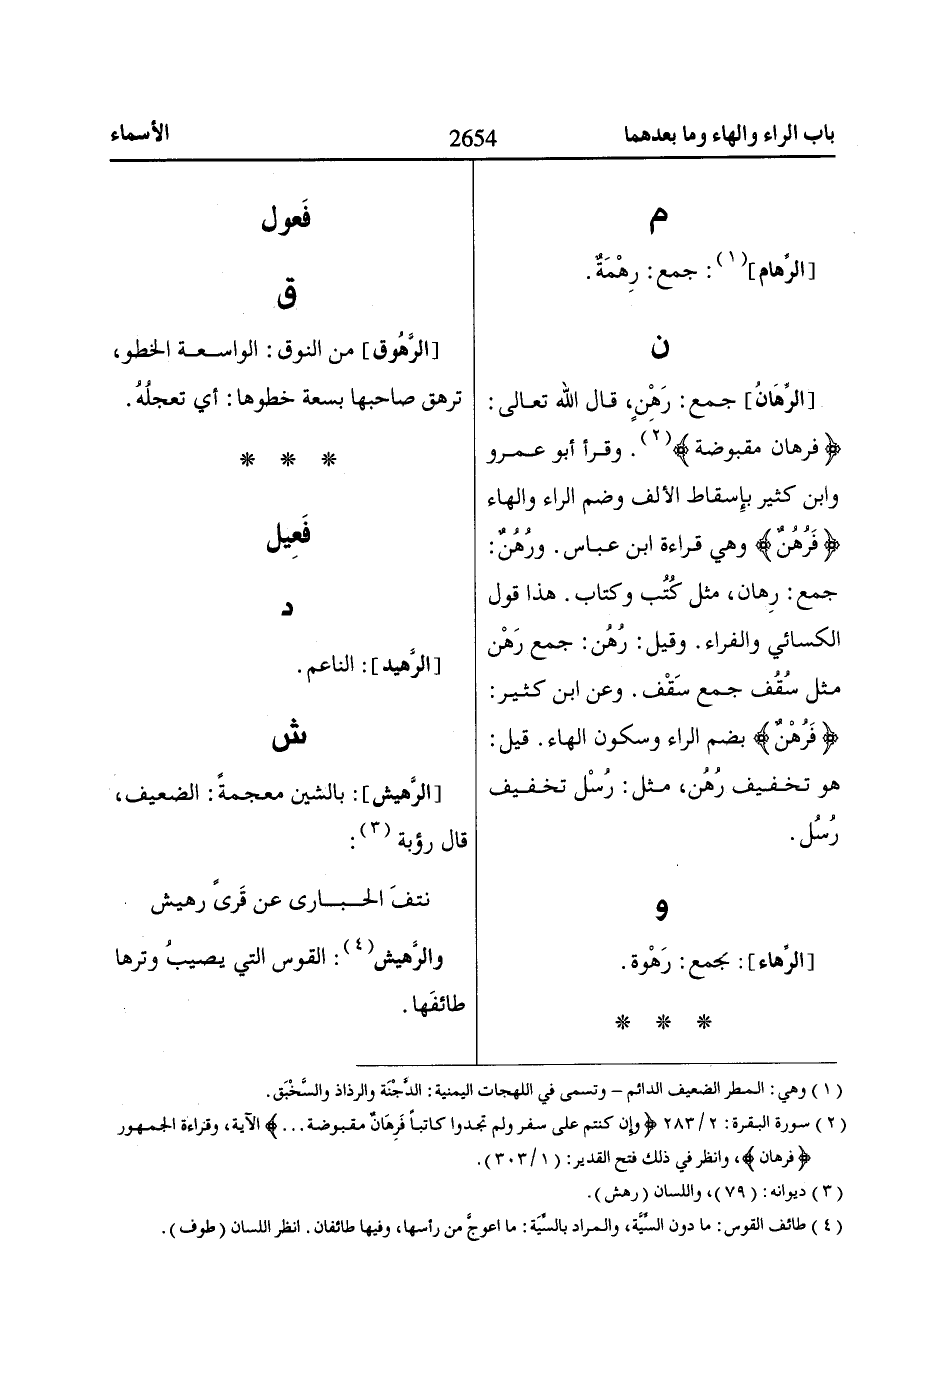 باب الراء والهاء وما بعدهما
2654
الأسماء
م
[الرِّهام](١): جمع: رِهْمَةٌ.
ن
[الرِّهَانُ] جمع: رَهْنٍ، قال الله تعالى:
﴿فرهان مقبوضة﴾(٢). وقرأ أبو عمرو
وابن كثير بإسقاط الألف وضم الراء والهاء
﴿فَرُهُنٌ﴾ وهي قراءة ابن عباس. ورُهُنٌ:
جمع: رِهان، مثل كُتُب وكتاب. هذا قول
الكسائي والفراء. وقيل: رُهُن: جمع رَهْن
مثل سُقُف جمع سَقْف. وعن ابن كثير:
﴿فَرُهْنٌ﴾ بضم الراء وسكون الهاء. قيل:
هو تخفيف رُهُن، مثل: رُسْل تخفيف
رُسُل.
و
[الرِّهاء]: بجمع: رَهْوة.
* * *
فَعول
ق
[الرَّهُوق] من النوق: الواسعة الخطو،
ترهق صاحبها بسعة خطوها: أي تعجلُهُ.
* * *
فَعِيل
د
[الرَّهيد]: الناعم.
ش
[الرَّهيش]: بالشين معجمةً: الضعيف،
قال رؤبة (٣):
نتفَ الحبارى عن قَرىً رهيش
والرَّهيش(٤): القوس التي يصيبُ وترها
طائفَها.
(١) وهي: المطر الضعيف الدائم – وتسمى في اللهجات اليمنية: الدَّجْنَة والرذاذ والسَّخْبَق.
(٢) سورة البقرة: ٢/ ٢٨٣ ﴿وإن كنتم على سفر ولم تجدوا كاتباً فَرِهَانٌ مقبوضة...﴾ الآية، وقراءة الجمهور
﴿فرهان﴾، وانظر في ذلك فتح القدير: (١/ ٣٠٣).
(٣) ديوانه: (٧٩)، واللسان (رهش).
(٤) طائف القوس: ما دون السِّيَّة، والمراد بالسِّيَة: ما اعوجَّ من رأسها، وفيها طائفان. انظر اللسان (طوف).